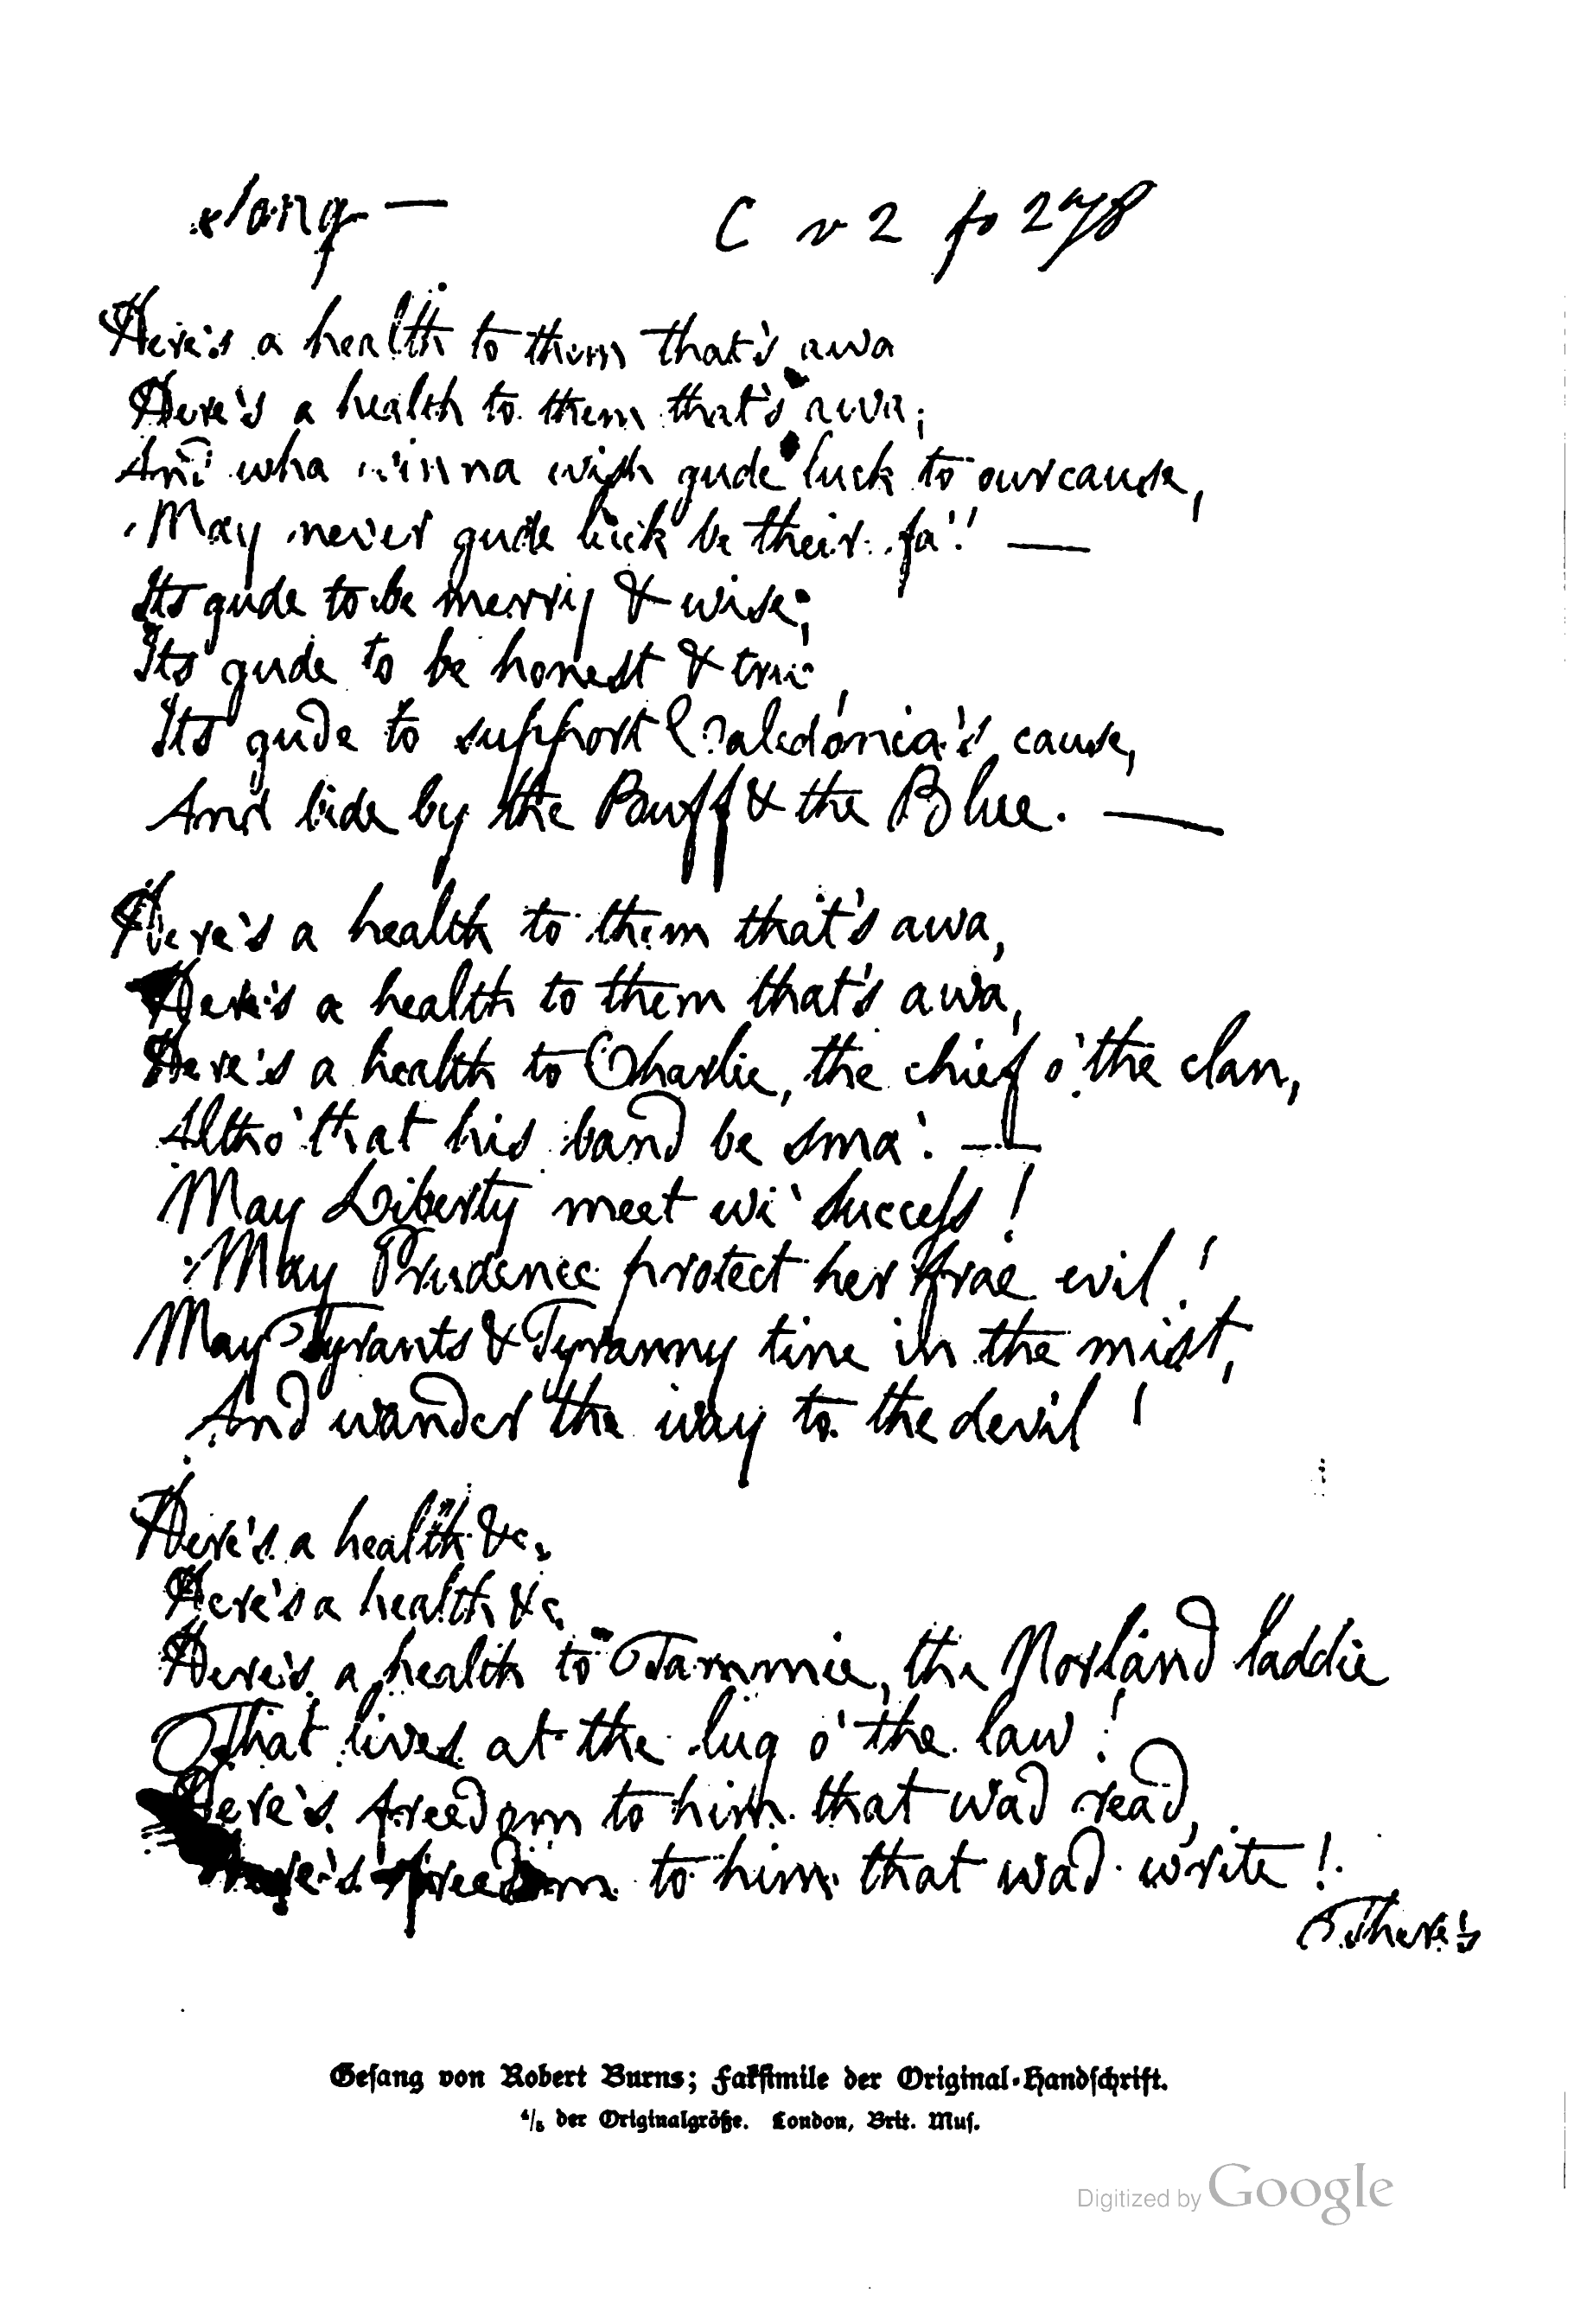 Song —
C v 2 fo 278
Here's a health to them that's awa
Here's a health to them that's awa;
And wha winna wish gude luck to our cause,
May never gude luck be their fa'! —
Its gude to be merry & wise;
Its gude to be honest & true,
Its gude to support Caledonia's cause,
And bide by the Buff & the Blue. —
Here's a health to them that's awa,
Here's a health to them that's awa,
Here's a health to Charlie, the chief o' the clan,
Altho' that his band be sma'. —
May Liberty meet wi' success!
May Prudence protect her frae evil!
May Tyrants & Tyranny tine in the mist,
And wander the way to the devil!
Here's a health &c.
Here's a health &c.
Here's a health to Tammie, the Norland laddie
That lives at the lug o' the law!
Here's freedom to him that wad read,
Here's freedom to him that wad write!
There's
Gesang von Robert Burns; Faksimile der Original-Handschrift.
4/5 der Originalgröße. London, Brit. Mus.
Digitized by Google